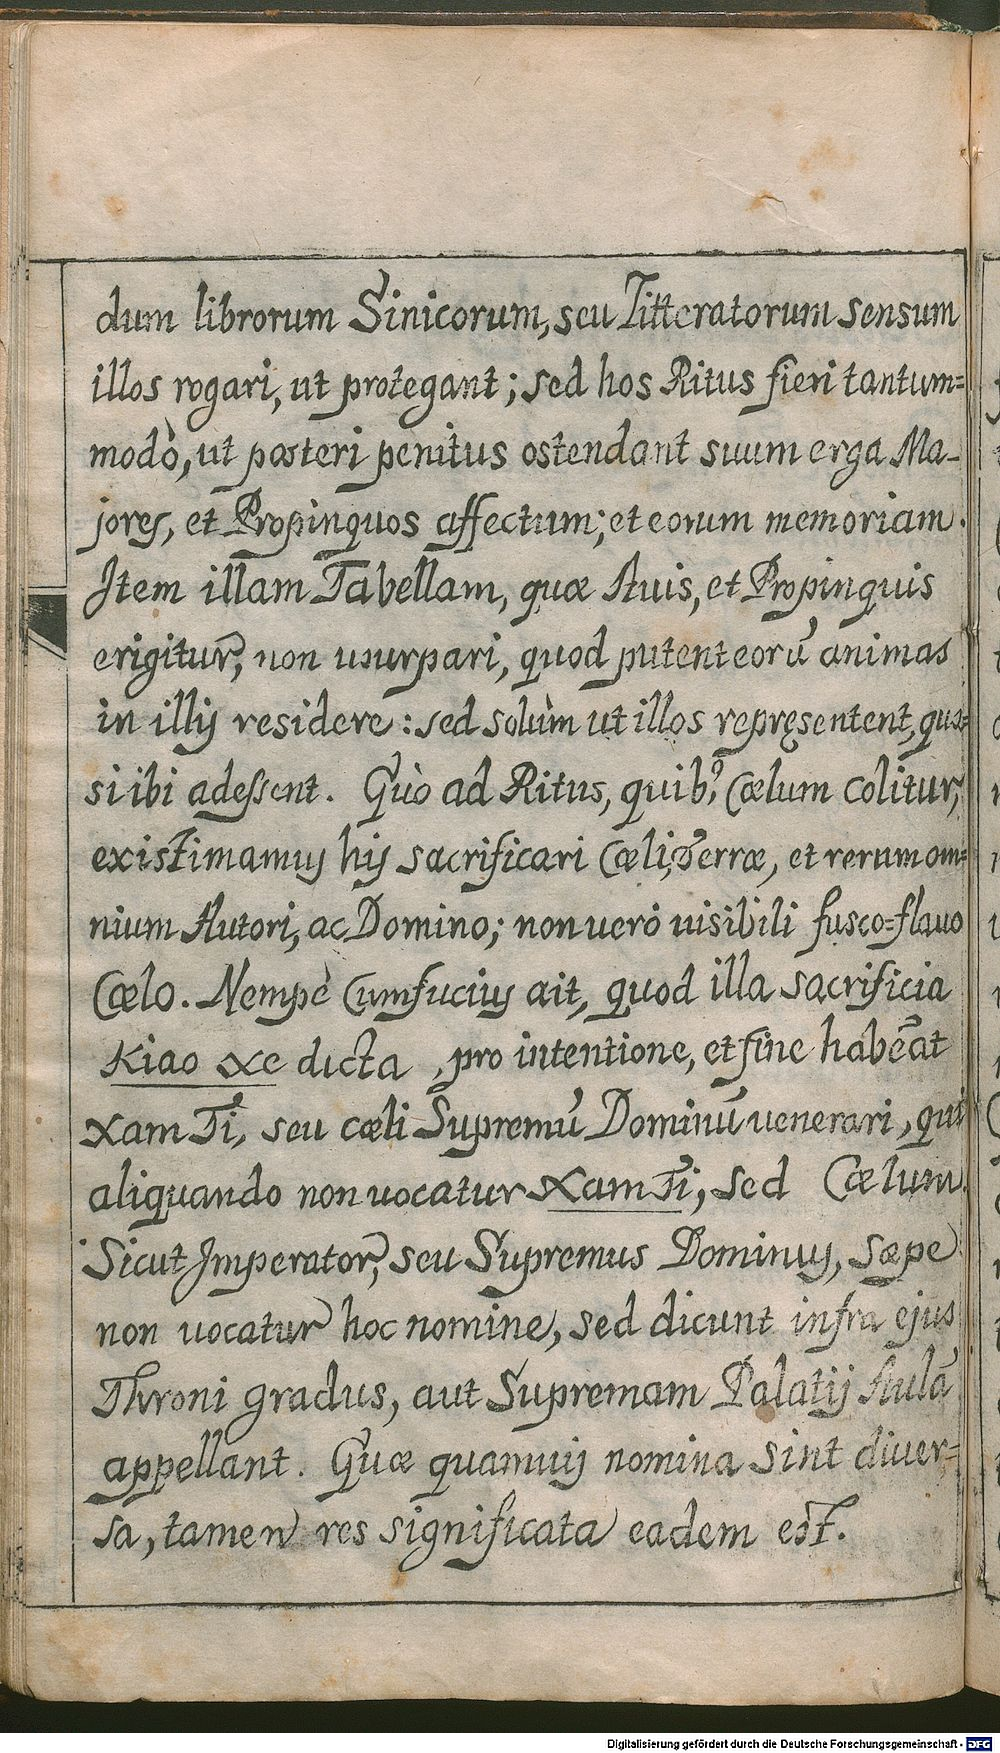 dum librorum Sinicorum, seu Litteratorum sensum
illos rogari, ut protegant; sed hos Ritus fieri tantum=
modò, ut posteri penitus ostendant suum erga Ma-
jores, et Propinquos affectum; et eorum memoriam.
Item illam Tabellam, quæ Auis, et Propinquis
erigitur, non usurpari, quod putent eorū animas
in illis residere: sed solùm ut illos repręsentent, qua=
si ibi adessent. Quò ad Ritus, quibꝰ Cœlum colitur,
existimamus his sacrificari Cœli, Terræ, et rerum om=
nium Autori, ac Domino; non verò uisibili fusco=flauo
Cœlo. Nempè Cumfucius ait, quod illa sacrificia
Kiao xe dicta, pro intentione, et fine habeāt
xam Ti, seu cœli Supremū Dominū uenerari, qui
aliquando non uocatur xam Ti, sed Cœlum.
Sicut Imperator, seu Supremus Dominus, sæpe
non uocatur hoc nomine, sed dicunt infra ejus
Throni gradus, aut Supremam Palatij Aulā
appellant. Quæ quamuis nomina sint diuer=
sa, tamen res significata eadem est.
Digitalisierung gefördert durch die Deutsche Forschungsgemeinschaft - DFG